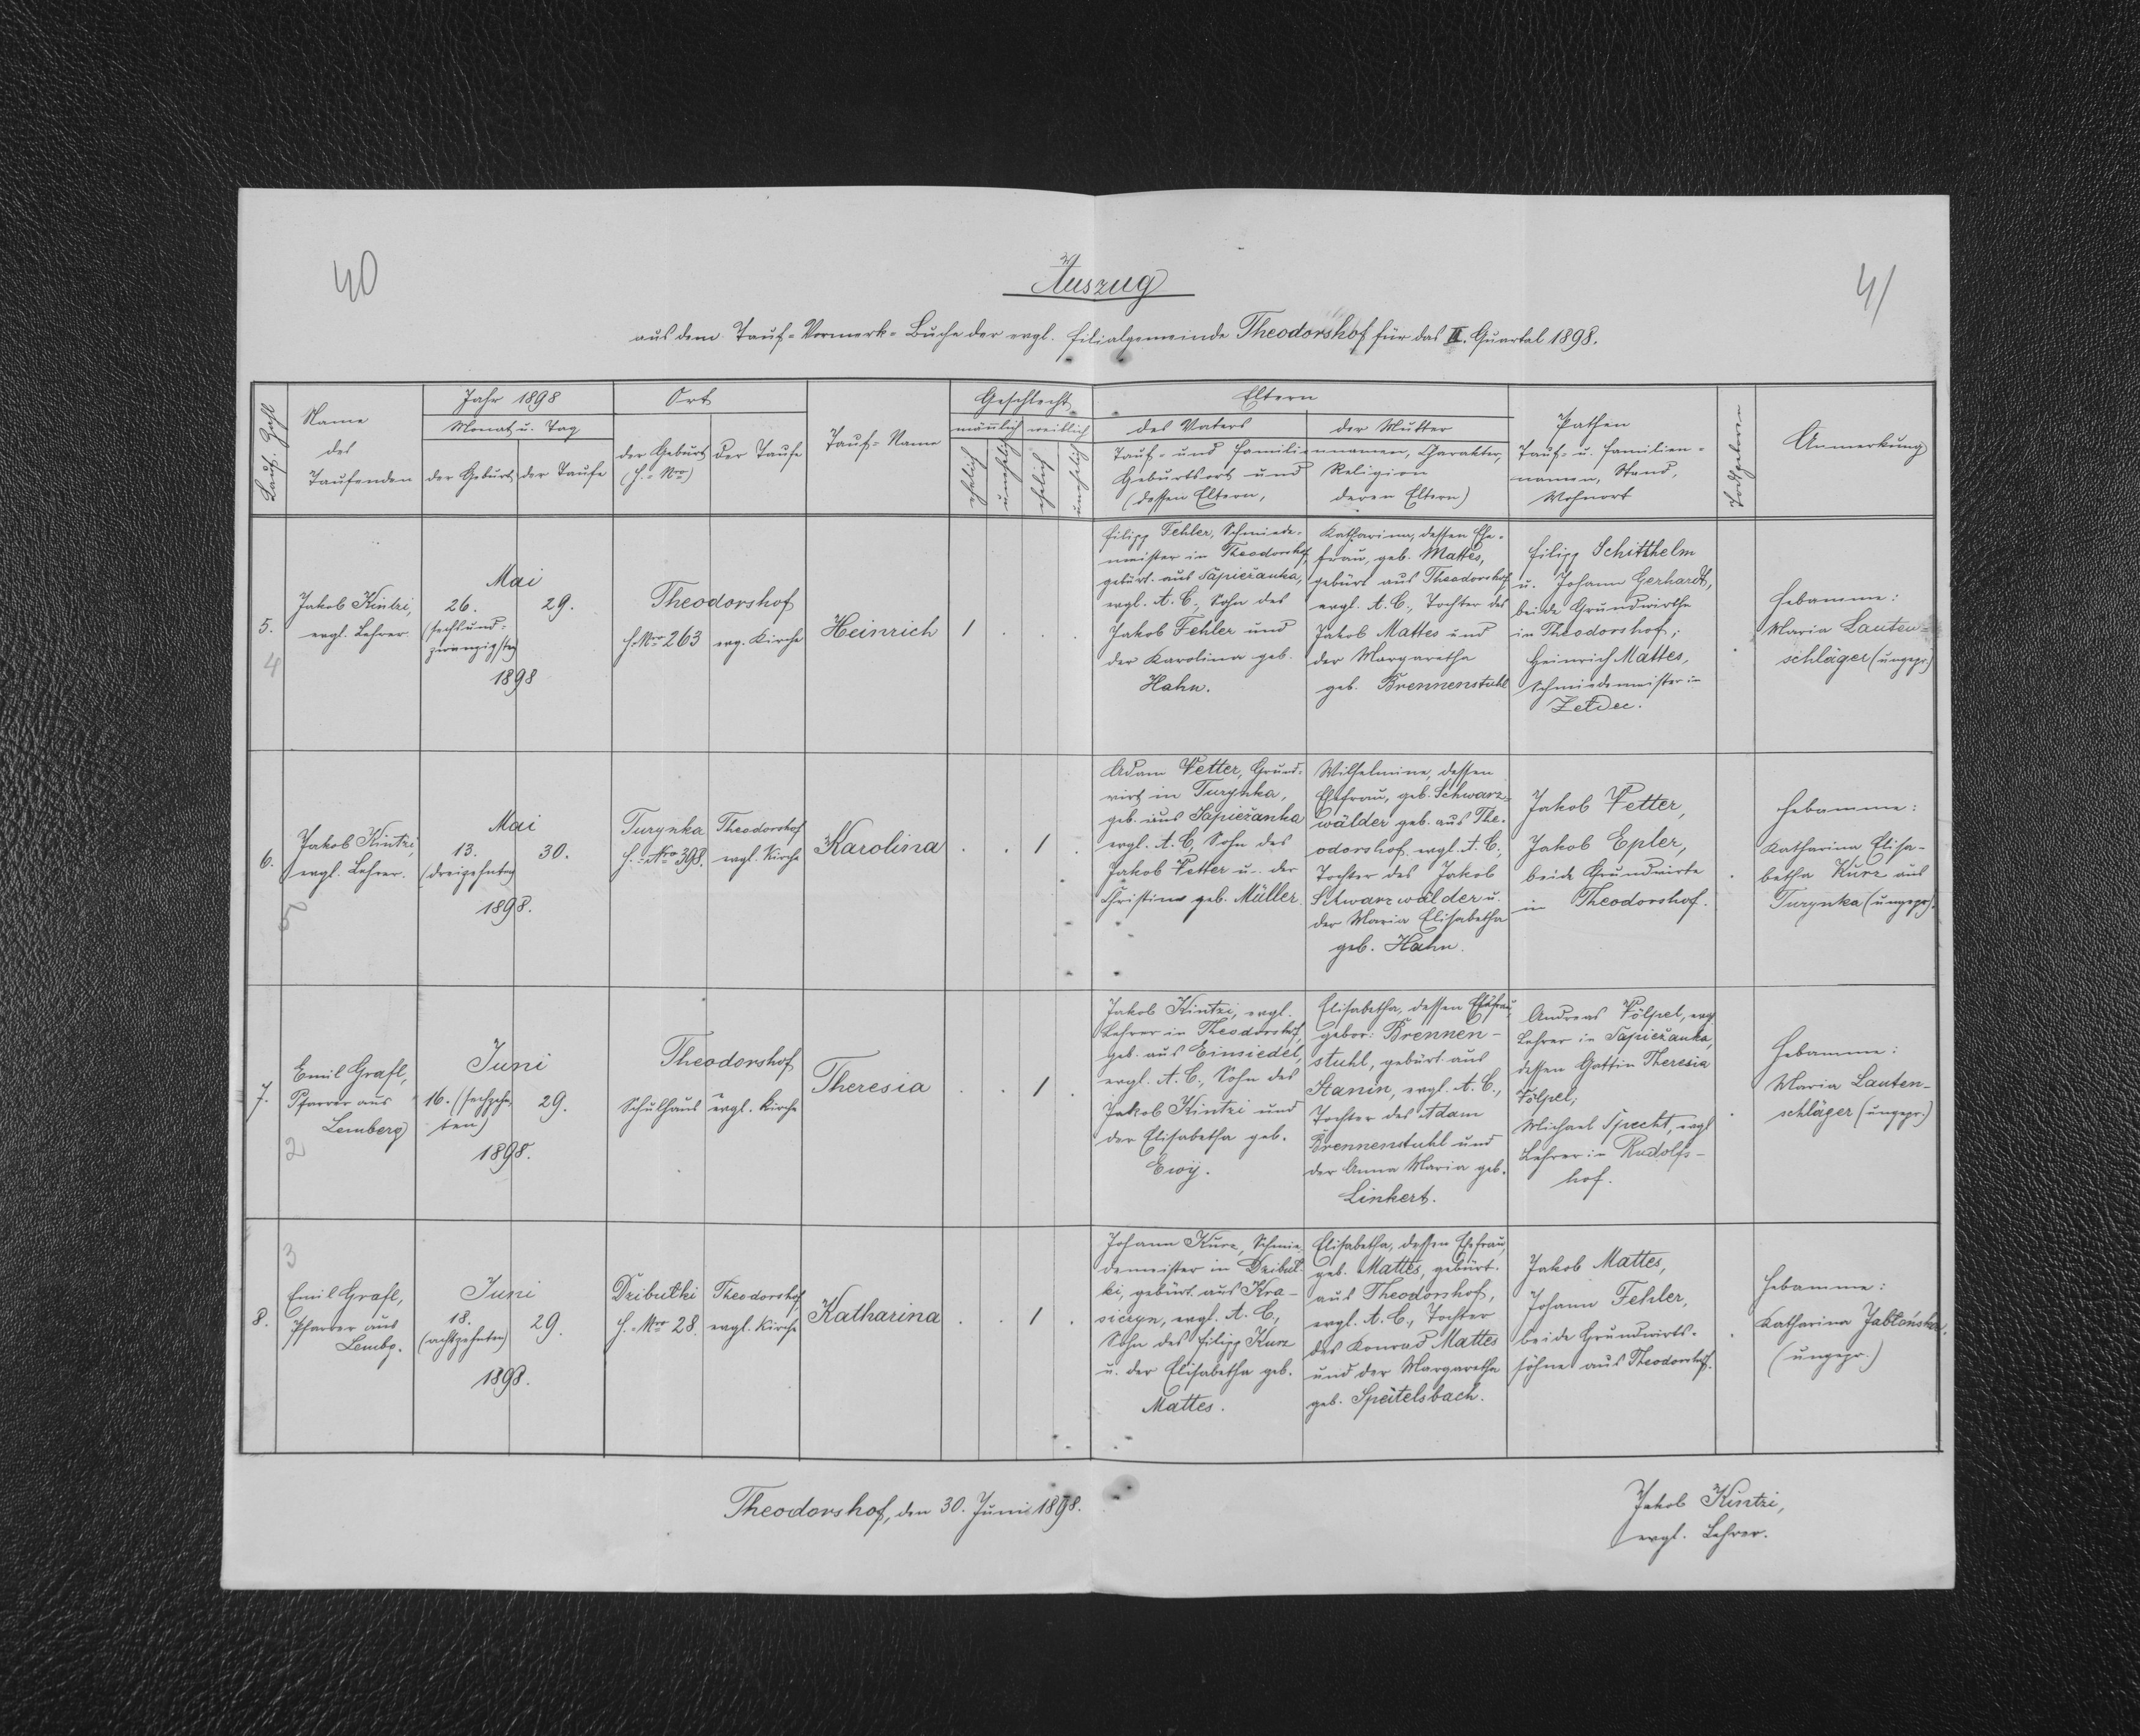 40
41
Auszug
aus dem Tauf-Vormerk-Buche der evgl. Filialgemeinde Theodorshof für das II. Quartal 1898.
Lauf. Zahl
Name
des
Taufenden
Jahr 1898
Monat u. Tag
der Geburt
der Taufe
Ort
der Geburt
(H.-Nro)
der Taufe
Tauf-Name
Geschlecht
männlich
weiblich
ehelich
unehelich
ehelich
unehelich
Eltern
des Vaters
der Mutter
Tauf- und Familiennamen, Charakter,
Geburtsort und Religion
(dessen Eltern,
deren Eltern)
Pathen
Tauf- u. Familien-
namen, Stand,
Wohnort
Todtgeboren
Anmerkung
5.
4
Jakob Kintzi,
evgl. Lehrer.
Mai
26.
(sechsund-
zwanzigsten)
29.
1898
Theodorshof
H.-Nro 263
evg. Kirche
Heinrich
1
Filipp Fehler, Schmiede-
meister in Theodorshof,
gebürt. aus Sapieżanka,
evgl. A. C., Sohn des
Jakob Fehler und
der Karolina geb.
Hahn.
Katharina, dessen Ehe-
frau, geb. Mattes,
gebürt aus Theodorshof,
evgl. A. C., Tochter des
Jakob Mattes und
der Margaretha
geb. Brennenstuhl
Filipp Schitthelm
u. Johann Gerhardt,
beide Grundwirthe
in Theodorshof;
Heinrich Mattes,
Schmiedemeister in
Żełdec.
Hebamme:
Maria Lauten-
schläger (ungepr.)
6.
5
Jakob Kintzi,
evgl. Lehrer.
Mai
13.
(dreizehnten)
30.
1898.
Turynka
H.-Nro 398.
Theodorshof
evgl. Kirche
Karolina
1
Adam Vetter, Grund-
wirt in Turynka,
geb. aus Sapieżanka
evgl. A. C., Sohn des
Jakob Vetter u. der
Christina geb. Müller.
Wilhelmine, dessen
Ehefrau, geb. Schwarz-
wälder geb. aus The-
odorshof. evgl. A. C.,
Tochter des Jakob
Schwarzwälder u.
der Maria Elisabetha
geb. Hahn.
Jakob Vetter,
Jakob Epler,
beide Grundwirte
in Theodorshof.
Hebamme:
Katharina Elisa-
betha Kurz aus
Turynka (ungepr).
7.
2
Emil Grafl,
Pfarrer aus
Lemberg
Juni
16. (sechzehn-
ten)
29.
1898.
Theodorshof
Schulhaus
evgl. Kirche
Theresia
1
Jakob Kintzi, evgl.
Lehrer in Theodorshof,
geb. aus Einsiedel,
evgl. A. C., Sohn des
Jakob Kintzi und
der Elisabetha geb.
Ewy.
Elisabetha, dessen Ehefrau,
gebor. Brennen-
stuhl, gebürt aus
Stanin, evgl. A. C.,
Tochter des Adam
Brennenstuhl und
der Anna Maria geb.
Linkert.
Andreas Völpel, evg
Lehrer in Sapieżanka,
dessen Gattin Theresia
Völpel;
Michael Specht, evgl
Lehrer in Rudolfs-
hof.
Hebamme:
Maria Lauten-
schläger (ungepr.)
8.
3
Emil Grafl,
Pfarrer aus
Lembg.
Juni
18.
(achtzehnten)
29.
1898.
Dzibułki
H.-Nro 28.
Theodorshof
evgl. Kirche
Katharina
1
Johann Kurz, Schmie-
demeister in Dzibuł-
ki, gebürt. aus Kra-
siczyn, evgl. A. C.,
Sohn des Filipp Kurz
u. der Elisabetha geb.
Mattes.
Elisabetha, dessen Ehefrau,
geb. Mattes, gebürt.
aus Theodorshof,
evgl. A. C., Tochter
des Konrad Mattes
und der Margaretha
geb. Speitelsbach.
Jakob Mattes,
Johann Fehler,
beide Grundwirts-
söhne aus Theodorshof.
Hebamme:
Katharina Jabłońska.
(ungepr.)
Theodorshof, den 30. Juni 1898.
Jakob Kintzi,
evgl. Lehrer.